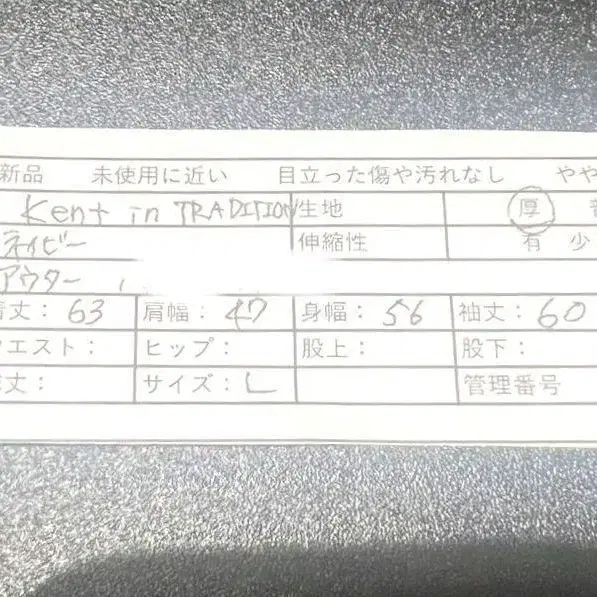 新品 未使用に近い 目立った傷や汚れなし やや
Kent in TRADITION 生地 厚 普
ネイビー 伸縮性 有 少
アウター
着丈: 63 肩幅: 47 身幅: 56 袖丈: 60
ウエスト: ヒップ: 股上: 股下:
丈: サイズ: L 管理番号